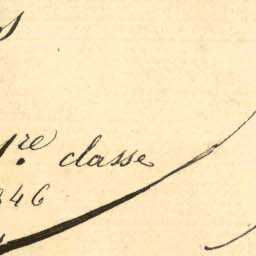 1re. classe
846